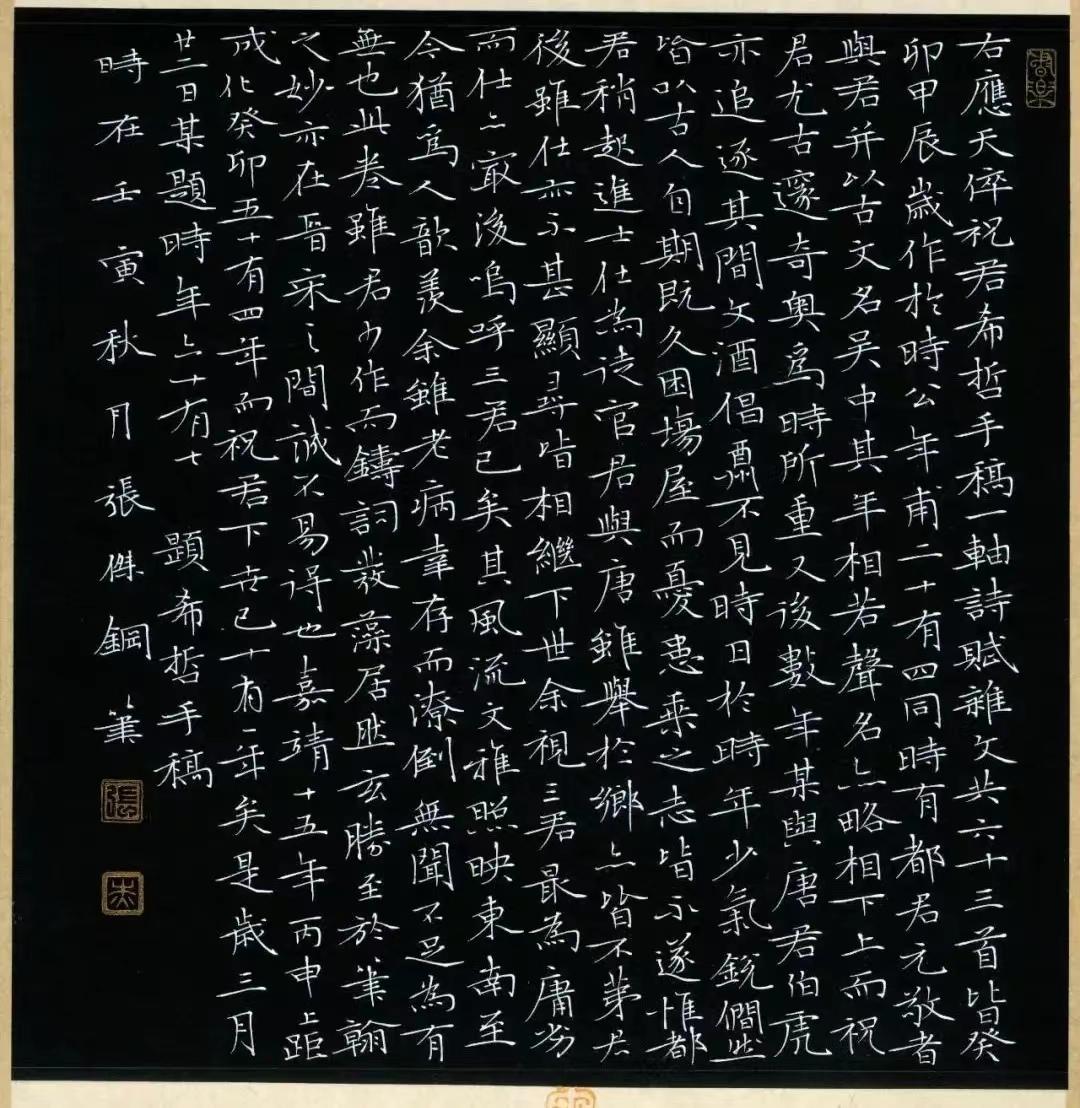 右應天倅祝君希哲手稿一軸詩賦雜文共六十三首皆癸
卯甲辰歲作於時公年甫二十有四同時有都君元敬者
與君并以古文名吳中其年相若聲名亦略相下上而祝
君尤古邃奇奧爲時所重又後數年某與唐君伯虎
亦追逐其間文酒倡酬不見時日於時年少氣銳僩然
皆以古人自期既久困場屋而憂患乘之志皆不遂惟都
君稍起進士仕為徒官君與唐雖舉於鄉亦皆不第君
後雖仕亦不甚顯尋皆相繼下世余視三君最為庸劣
而仕亦最後嗚呼三君已矣其風流文雅照映東南至
今猶爲人歆羨余雖老病幸存而潦倒無聞不足為有
無也此卷雖君少作而鑄詞發藻居然玄勝至於筆翰
之妙亦在晉宋之間誠不易得也嘉靖十五年丙申上距
成化癸卯五十有四年而祝君下世已十有一年矣是歲三月
廿二日某題時年六十有七 題希哲手稿
時在壬寅秋月張傑鋼筆
張
杰